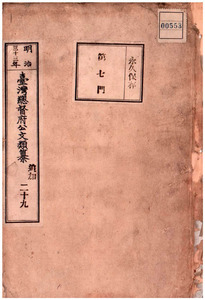 00553
永久保存
第七門
明治
臺灣總督府公文類纂
追加
二十九